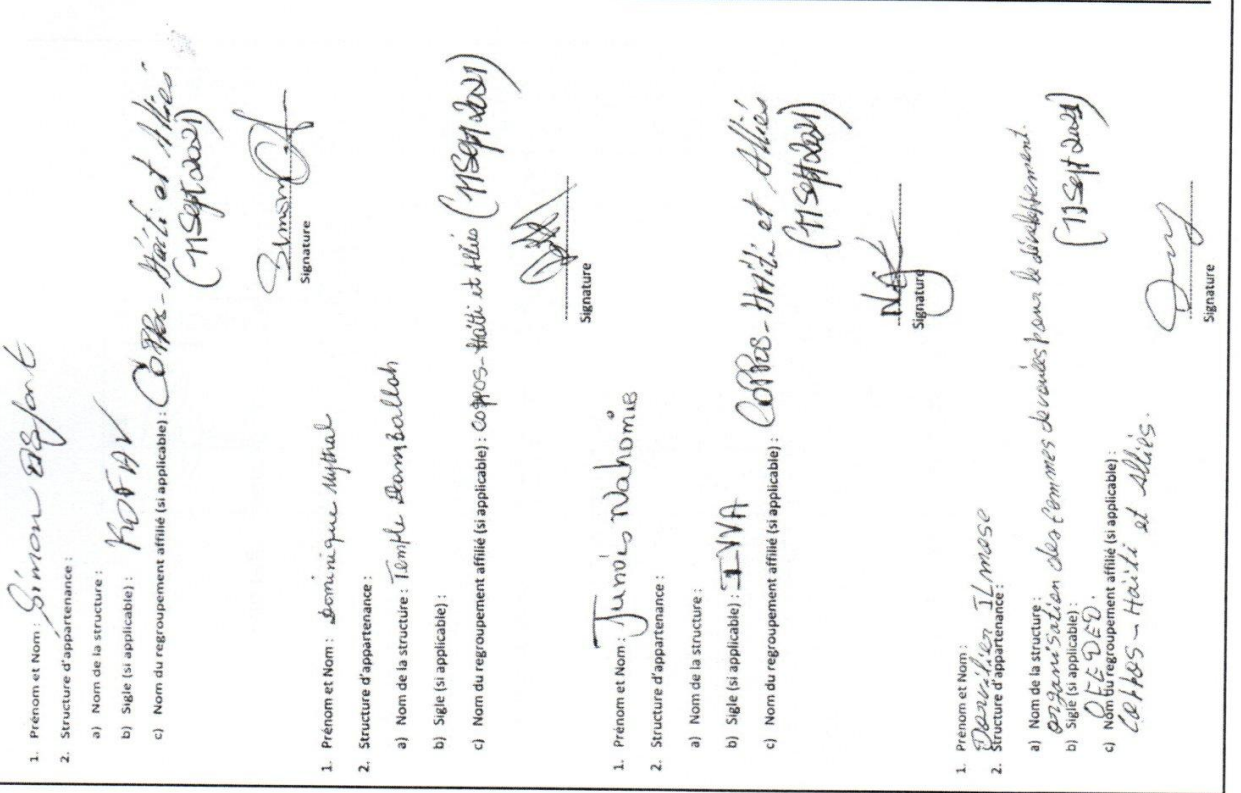 1. Prénom et Nom : Simon
2. Structure d'appartenance :
a) Nom de la structure :
b) Sigle (si applicable) : KOFAV
c) Nom du regroupement affilié (si applicable) : Coppos-Haïti et Alliés
(11 Sept 2021)
Signature
1. Prénom et Nom : Dominique Mythal
2. Structure d'appartenance :
a) Nom de la structure : Temple Damballah
b) Sigle (si applicable) :
c) Nom du regroupement affilié (si applicable) : Coppos-Haïti et Alliés (11 Sept 2021)
Signature
1. Prénom et Nom : Junois Nahomie
2. Structure d'appartenance :
a) Nom de la structure :
b) Sigle (si applicable) :
c) Nom du regroupement affilié (si applicable) : Coppos-Haïti et Alliés
(11 Sept 2021)
Signature
1. Prénom et Nom :
Dorvilier Ilmose
2. Structure d'appartenance :
a) Nom de la structure :
organisation des femmes devouées pour le développement.
b) Sigle (si applicable) :
c) Nom du regroupement affilié (si applicable) :
Coppos-Haïti et Alliés.
(11 Sept 2021)
Signature